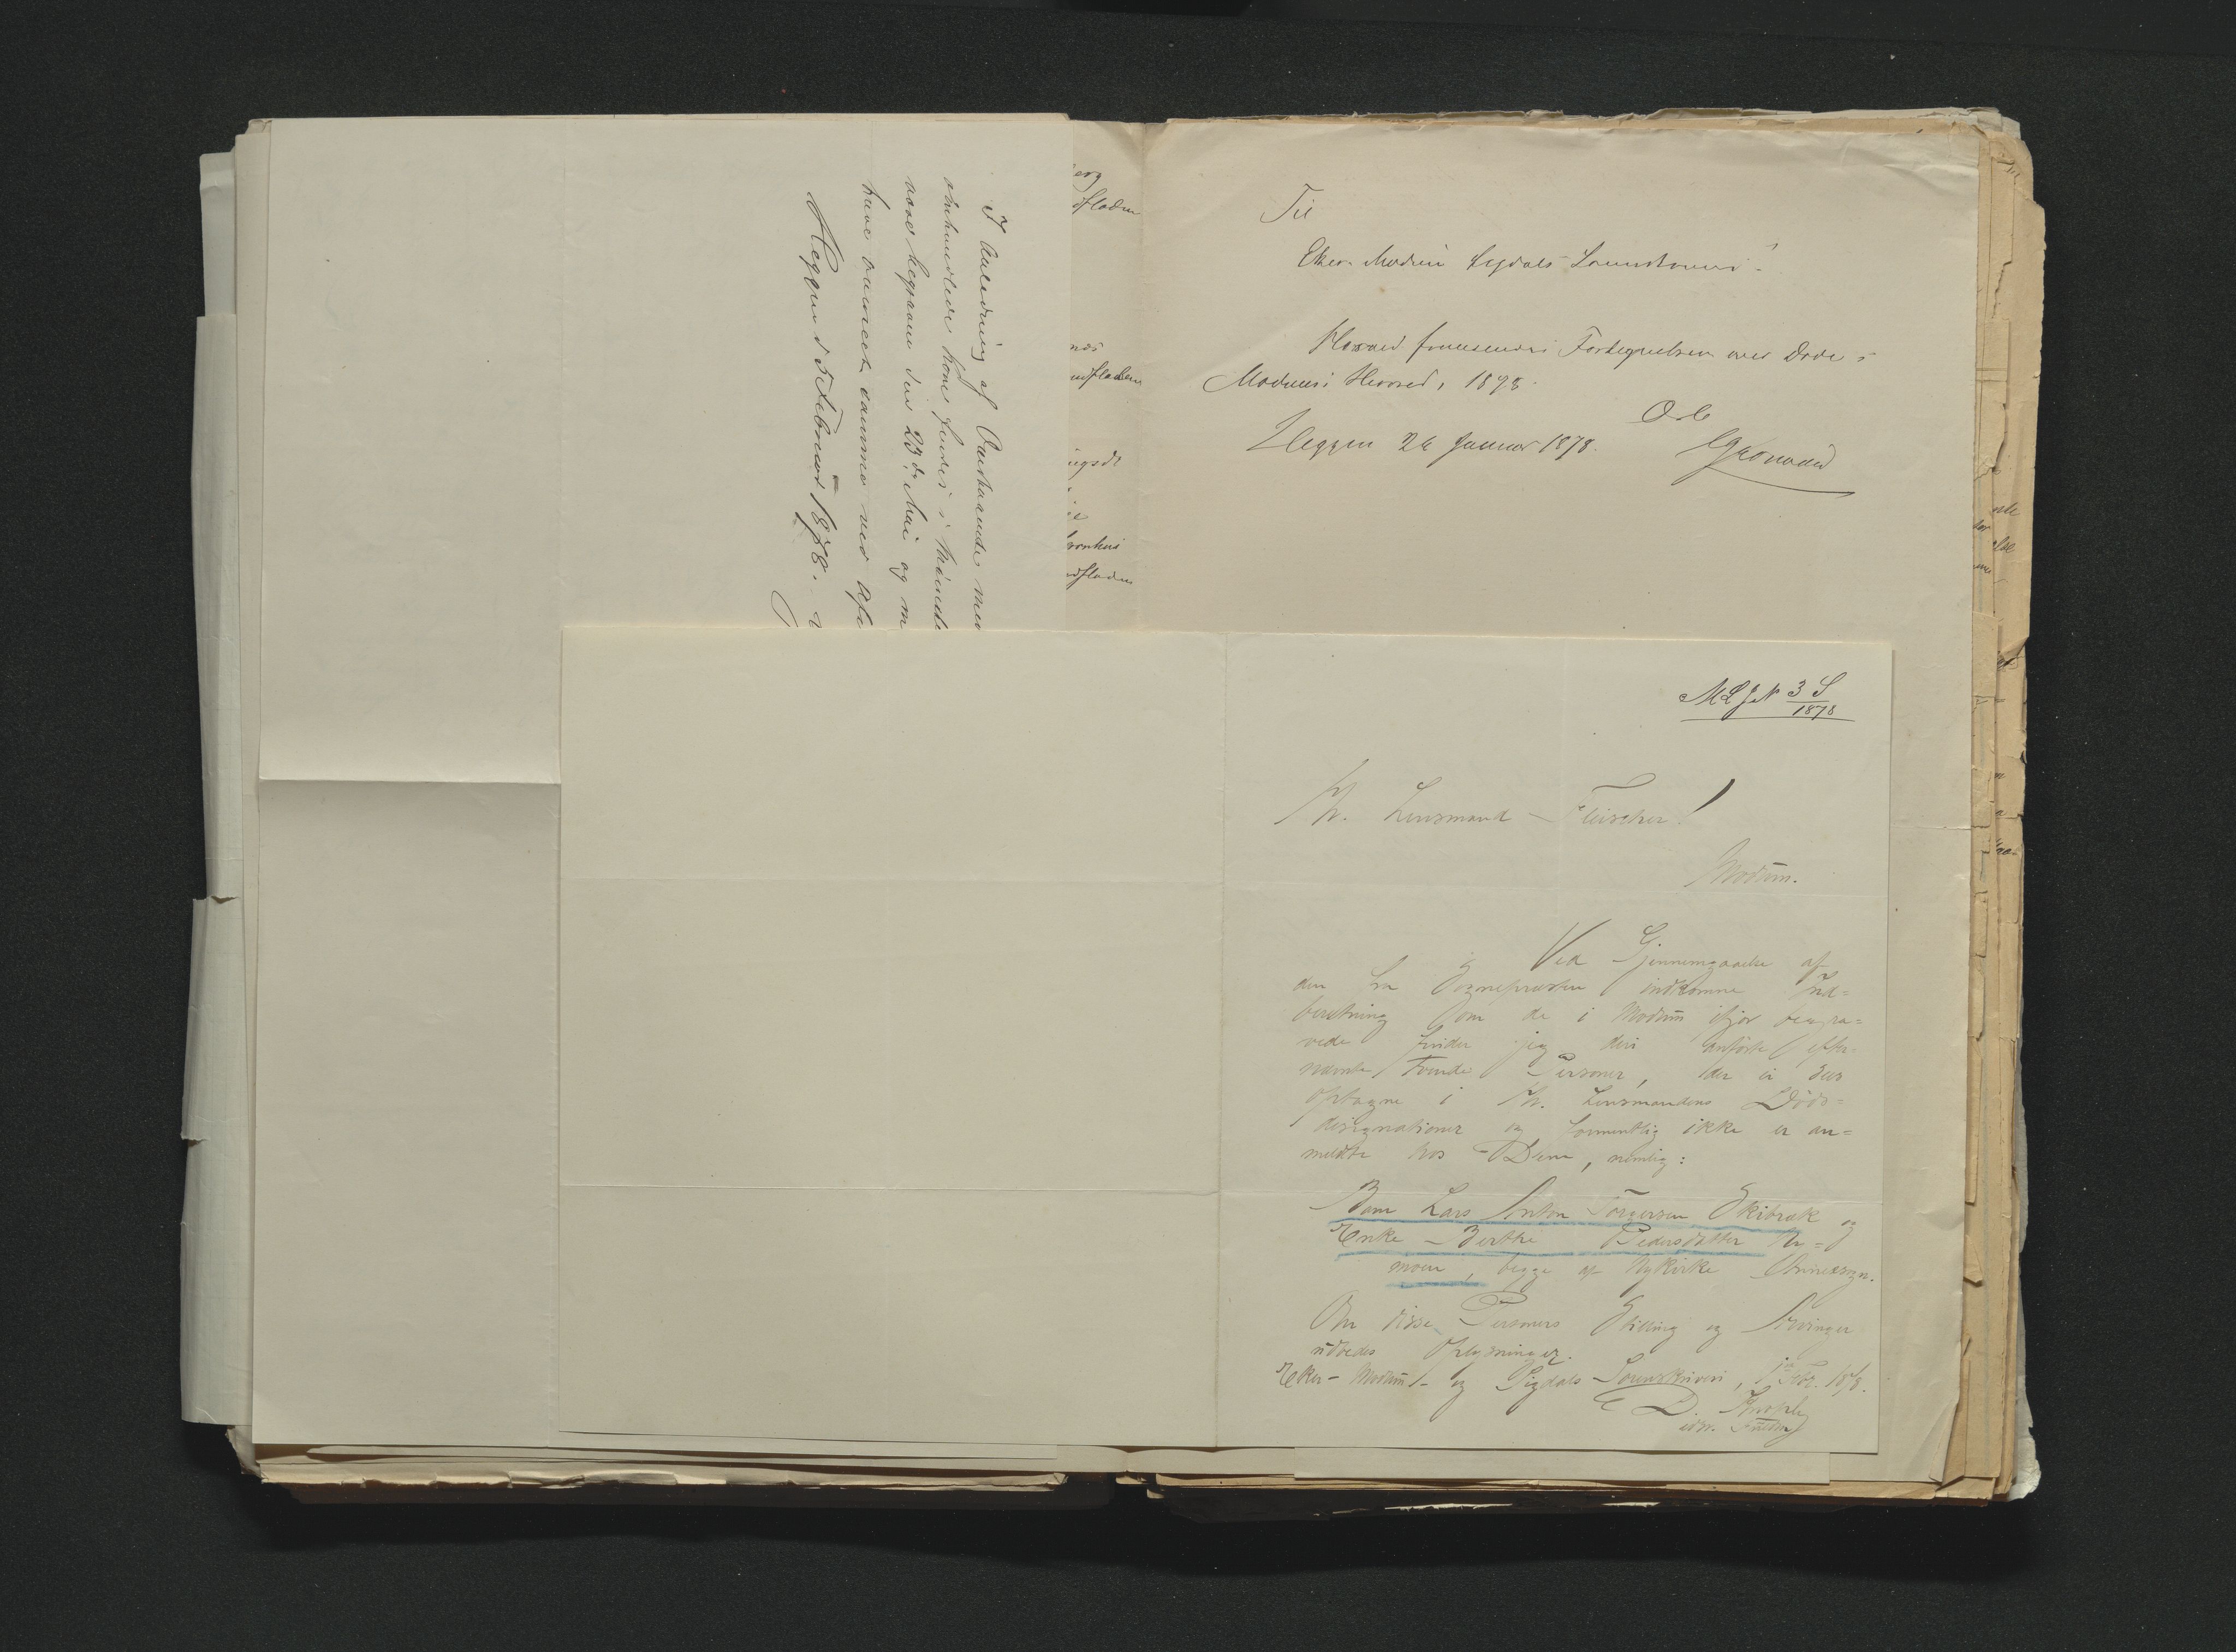 I Anledning af Omstaaende med
omhandlede Kone findes i Ministe
være begraven den 23de Mai og m
have anmeldt samme ved Af
Heggen d 5 Februar 1878.
erg
dfladen
ndfladen
ingsdt
dfladen
Til
Eker Modum Sigdals Sorenskriveri.
Hermed fremsendes Fortegnelsen over Døde i
Modums Herred, 1878.
Heggen 26 Januar 1878.
Ærb
M L J N 3 S
1878
Hr. Lensmand Fleischer!
Modum.
Ved Gjennemgaaelse af
den fra Sognepræsten indkomne Ind=
beretning om de i Modum ifjor begra=
vede finder jeg deri anførte efter=
nævnte tvende Personer, der ei sees
optagne i Hr. Lensmandens Døds=
designationer og formentlig ikke er an=
meldte hos Dem, nemlig:
Barn Lars Anton Torgersen Skibræk og
Enke Berthe Pedersdatter
moen, begge af Nykirke Annexsogn.
Om disse Personers Stilling og Arvinger
udbedes Oplysninger.
Eker- Modum- og Sigdals Sorenskriveri, 1 Febr. 1878.